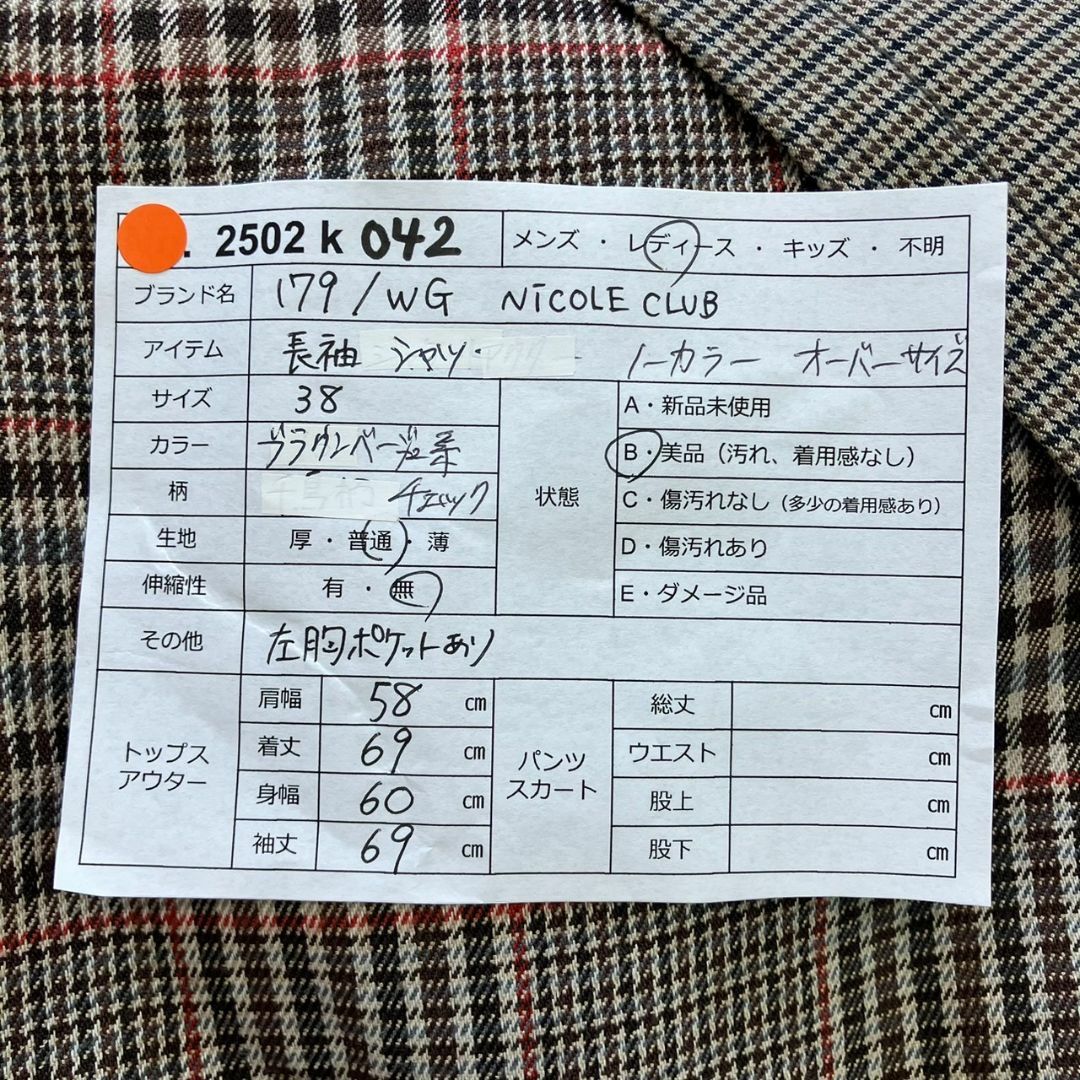 . 2502 k 042
メンズ ・ レディース ・ キッズ ・ 不明
ブランド名 179/WG NiCOLE CLUB
アイテム 長袖 シャツ・ ノーカラー オーバーサイズ
サイズ 38
カラー ブラウンベージュ系
柄 チェック
生地 厚・普通・薄
伸縮性 有・無
状態
A・新品未使用
B・美品(汚れ、着用感なし)
C・傷汚れなし(多少の着用感あり)
D・傷汚れあり
E・ダメージ品
その他 左胸ポケットあり
トップス
アウター
肩幅 58 ㎝
着丈 69 ㎝
身幅 60 ㎝
袖丈 69 ㎝
パンツ
スカート
総丈 ㎝
ウエスト ㎝
股上 ㎝
股下 ㎝